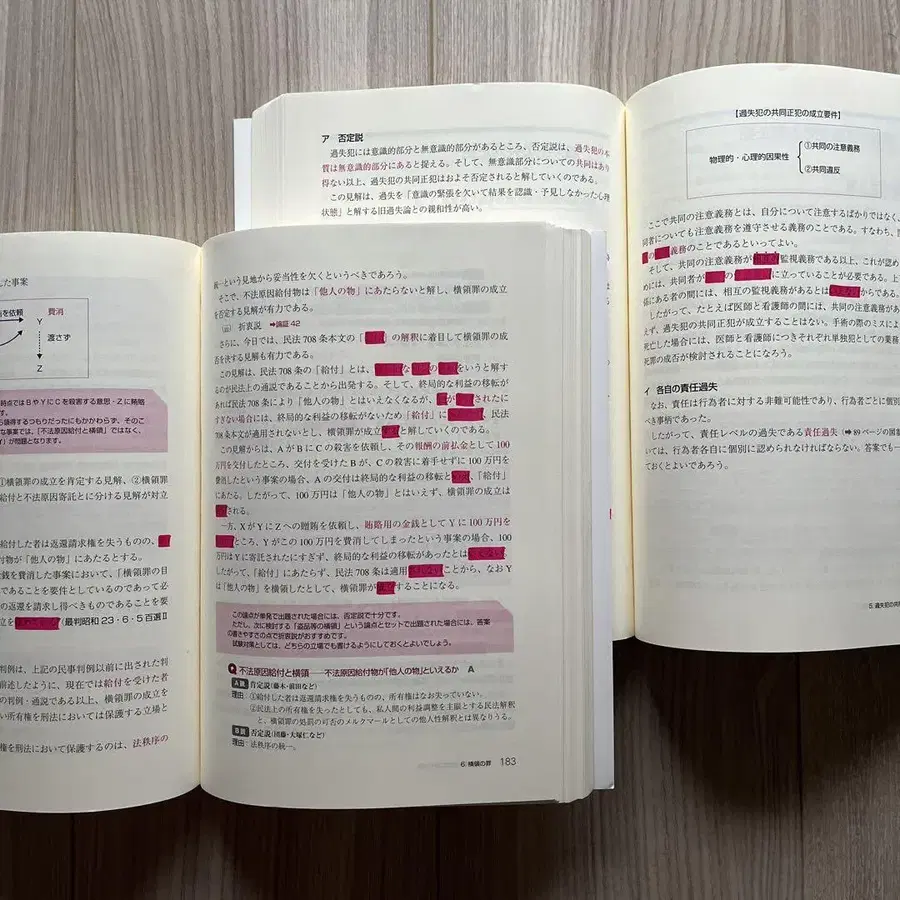 ア 否定説
過失犯には意識的部分と無意識的部分があるところ、否定説は、過失犯の本
質は無意識的部分にあると捉える。そして、無意識部分についての共同はあり
得ない以上、過失犯の共同正犯はおよそ否定されると解していくのである。
この見解は、過失を「意識の緊張を欠いて結果を認識・予見しなかった心理
状態」と解する旧過失論との親和性が高い。
【過失犯の共同正犯の成立要件】
物理的・心理的因果性
①共同の注意義務
②共同違反
ここで共同の注意義務とは、自分について注意するばかりではなく、
同者についても注意義務を遵守させる義務のことである。すなわち、
の 義務のことであるといってよい。
そして、共同の注意義務が 監視義務である以上、これが認め
めには、共同者が の に立っていることが必要である。上
係にある者の間には、相互の監視義務があるとは からである。
したがって、たとえば医師と看護師の間には、共同の注意義務があ
えず、過失犯の共同正犯が成立することはない。手術の際のミスによ
死亡した場合には、医師と看護師につきそれぞれ単独犯としての業務
死罪の成否が検討されることになろう。
イ 各自の責任過失
なお、責任は行為者に対する非難可能性であり、行為者ごとに個別
べき事柄であった。
したがって、責任レベルの過失である責任過失（➡89ページの図
いては、行為者各自に個別に認められなければならない。答案でも一
ておくとよいであろう。
5 過失犯の共
した事案
を依頼
Y
費消
渡さず
Z
時点ではBやYにCを殺害する意思・Zに賄賂
す。
ら領得するつもりだったにもかかわらず、そのこ
な事案では、「不法原因給付と横領」ではなく、
Y）が問題となります。
①横領罪の成立を肯定する見解、②横領罪
給付と不法原因寄託とに分ける見解が対立
給付した者は返還請求権を失うものの、
付物が「他人の物」にあたるとする。
金銭を費消した事案において、「横領罪の目
であることを要件としているのであって必
の返還を請求し得べきものであることを要
立を （最判昭和23・6・5百選Ⅱ
判例は、上記の民事判例以前に出された判
前述したように、現在では給付を受けた者
の判例・通説である以上、横領罪の成立を
い所有権を刑法においては保護する立場と
権を刑法において保護するのは、法秩序の
統一という見地から妥当性を欠くというべきであろう。
そこで、不法原因給付物は「他人の物」にあたらないと解し、横領罪の成立
を否定する見解が有力である。
(ⅲ) 折衷説 ➡論証42
さらに、今日では、民法708条本文の「 」の解釈に着目して横領罪の成
否を決する見解も有力である。
この見解は、民法708条の「給付」とは、 な の をいうと解す
るのが民法上の通説であることから出発する。そして、終局的な利益の移転が
あれば民法708条により「他人の物」とはいえなくなるが、 が されたに
すぎない場合には、終局的な利益の移転がないため「給付」に 、民法
708条本文が適用されないとし、横領罪が成立 と解していくのである。
この見解からは、AがBにCの殺害を依頼し、その報酬の前払金として100
万円を交付したところ、交付を受けたBが、Cの殺害に着手せずに100万円を
費消したという事案の場合、Aの交付は終局的な利益の移転と 、「給付」
にあたる。したがって、100万円は「他人の物」とはいえず、横領罪の成立は
される。
一方、XがYにZへの贈賄を依頼し、賄賂用の金銭としてYに100万円を
ところ、Yがこの100万円を費消してしまったという事案の場合、100
万円はYに寄託されたにすぎず、終局的な利益の移転があったとは 。
したがって、「給付」にあたらず、民法708条は適用 ことから、なおY
は「他人の物」を横領したとして、横領罪が することになる。
この論点が単発で出題された場合には、否定説で十分です。
ただし、次に検討する「盗品等の横領」という論点とセットで出題された場合には、答案
の書きやすさの点で折衷説がおすすめです。
試験対策としては、どちらの立場でも書けるようにしておくとよいでしょう。
Q 不法原因給付と横領――不法原因給付物が「他人の物」といえるか A
A説 肯定説（藤木・前田など）
理由：①給付した者は返還請求権を失うものの、所有権はなお失っていない。
②民法上の所有権を失ったとしても、私人間の利益調整を主眼とする民法解釈
と、横領罪の処罰の可否のメルクマールとしての他人性解釈とは異なりうる。
B説 否定説（団藤・大塚仁など）
理由：法秩序の統一。
6. 横領の罪 183